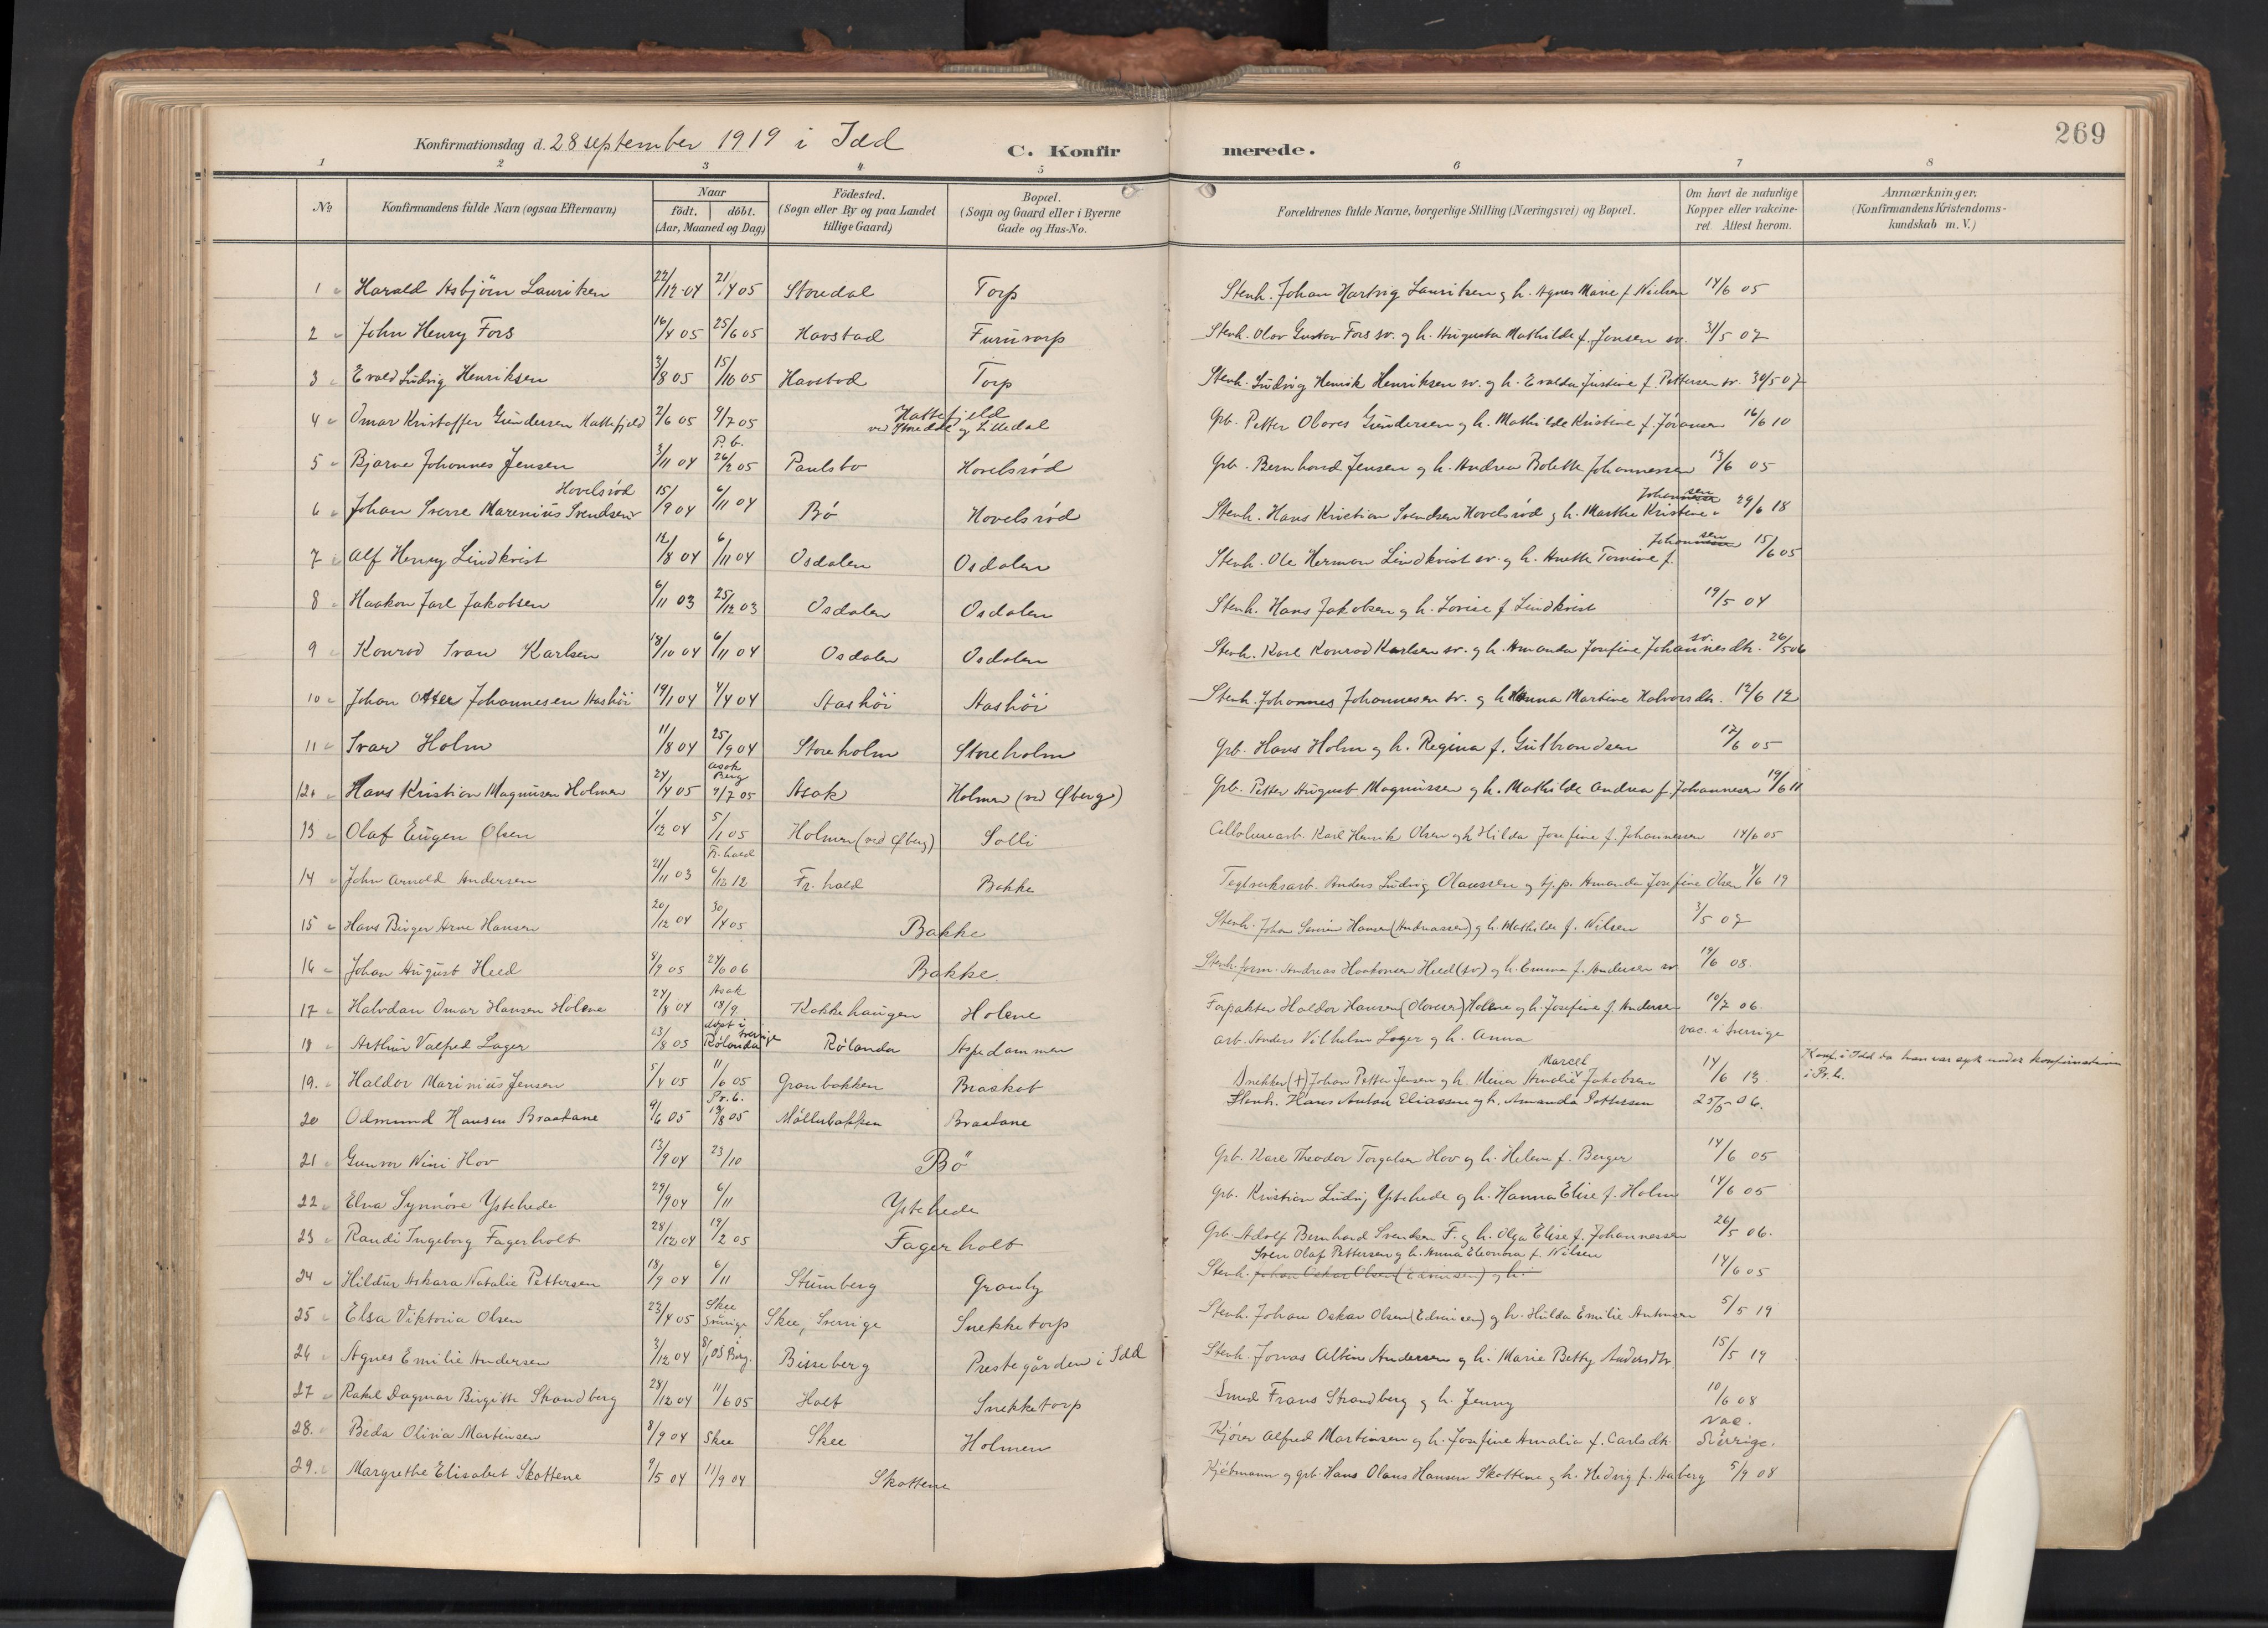 269
Konfirmationsdag d. 28 september 1919 i Idd
C. Konfirmerede.
1 2 3 4 5 6 7 8
No
Konfirmandens fulde Navn (ogsaa Efternavn)
Naar
födt. | döbt.
(Aar, Maaned og Dag)
Födested.
(Sogn eller By og paa Landet
tillige Gaard)
Bopæl.
(Sogn og Gaard eller i Byerne
Gade og Hus-No.
Forældrenes fulde Navne, borgerlige Stilling (Næringsvei) og Bopæl.
Om havt de naturlige
Kopper eller vakcine-
ret. Attest herom.
Anmærkninger.
(Konfirmandens Kristendoms-
kundskab m. V.)
1 Harald Asbjörn Lauritsen 22/12 04 21/4 05 Storedal Torp Stenh. Johan Hartvig Lauritsen og h. Agnes Marie f. Nielsen 14/6 05
2 John Henry Fors 16/4 05 25/6 05 Havstad Furutorp Stenh. Olav Gustav Fors sv. og h. Augusta Mathilde f. Jonsen sv. 31/5 07
3 Evald Ludvig Henriksen 3/8 05 15/10 05 Havstad Torp Stenh. Ludvig Henrik Henriksen sv. og h. Evalda Justine f. Pettersen sv. 30/5 07
4 Omar Kristoffer Gundersen Hattefjeld 2/6 05 9/7 05 Hattefjeld ved Storedal og Lilledal Grb. Petter Olaves Gundersen og h. Mathilde Kristine f. Jöransen 16/6 10
5 Bjarne Johannes Jensen 3/11 04 P.b. 26/2 05 Paulsbo Hovelsröd Grb. Bernhard Jensen og h. Andrea Bolette Johannessen 13/6 05
6 Johan Sverre Marenius Svendsen Hovelsröd 15/9 04 6/11 04 Bö Hovelsröd Stenh. Hans Kristian Svendsen Hovelsröd og h. Marthe Kristine Johansen 29/6 18
7 Alf Henry Lindkvist 12/8 04 6/11 04 Osdalen Osdalen Stenh. Ole Herman Lindkvist sv. og h. Anette Tomine f. Johansen 15/6 05
8 Haakon Jarl Jakobsen 6/11 03 25/12 03 Osdalen Osdalen Stenh. Hans Jakobsen og h. Lovise f. Lindkvist 19/5 04
9 Konrad Ivan Karlsen 18/10 04 6/11 04 Osdalen Osdalen Stenh. Karl Konrad Karlsen sv. og h. Amanda Josefine Johannesdtr. sv. 26/5 06
10 Johan Otter Johannesen Aashöi 19/1 04 4/4 04 Aashöi Aashöi Stenh. Johannes Johannesen sv. og h. Hanna Martine Halvorsdtr. 12/6 12
11 Ivar Holm 11/8 04 25/9 04 Storeholm Storeholm Grb. Hans Holm og h. Regina f. Gulbrandsen 12/6 05
12 Hans Kristian Magnusen Holmen 24/4 05 Asak Berg 9/7 05 Asak Holmen (ved Øberg) Grb. Petter August Magnussen og h. Mathilde Andrea f. Johannesen 19/6 11
13 Olaf Eugen Olsen 1/12 04 5/1 05 Holmen (ved Øberg) Solli Cellulosearb. Karl Henrik Olsen og h. Hilda Josefine f. Johannessen 14/6 05
14 John Arnold Andersen 21/11 03 Fr.hald 6/12 12 Fr. hald Bakke Teglverksarb. Anders Ludvig Olaussen og tj.p. Amanda Josefine Olsen 4/6 19
15 Hans Birger Arne Hansen 20/12 04 30/4 05 Bakke Stenh. Johan Severin Hansen (Andreassen) og h. Mathilde f. Nilsen 3/5 07
16 Johan August Heed 8/9 05 24/6 06 Bakke. Stenh. form. Andreas Haakonsen Heed (sv) og h. Emma f. Andersen sv 19/6 08.
17 Halvdan Omar Hansen Holene 24/8 04 Asak 18/9 Kokkehaugen Holene Forpakter Haldor Hansen (Olavesen) Holene og h. Josefine f. Andersen 10/7 06
18 Arthur Valfred Lager 23/8 05 döpt i Sverrige Rölanda Rölanda Aspedammen arb. Anders Vilhelm Lager og h. Anna vac. i Sverrige
19. Haldor Marinius Jensen 5/4 05 11/6 05 Granbakken Braskot Snekker (†) Johan Petter Jensen og h. Mina Amalie Marcel. Jakobsen 14/6 13 Konf. i Idd da han var syk under konfirmationen i Pr. b.
20 Odmund Hansen Braatane 9/6 05 Pr.b. 19/8 05 Möllebakken Braatane Stenh. Hans Anton Eliassen og h. Amanda Pettersen 25/5 06.
21 Gunvor Nini Hov 13/9 04 23/10 Bö Grb. Karl Theodor Torgalsen Hov og h. Helene f. Berger 14/6 05
22 Elva Synnöve Ystehede 29/9 04 6/11 Ystehede Grb. Kristian Ludvig Ystehede og h. Hanna Elise f. Holm 14/6 05
23 Randi Ingeborg Fagerholt 28/12 04 19/2 05 Fagerholt Grb. Adolf Bernhard Svendsen F. og h. Olga Elise f. Johannessen 26/5 06.
24 Hildur Askara Natalie Pettersen 18/9 04 6/11 Stumberg Granly Stenh. Johan Oskar Olsen (Edvinsen) og h. Sven Olaf Pettersen og h. Anna Eleonora f. Nilsen 14/6 05
25 Elsa Viktoria Olsen 23/4 05 Skee Sverrige Skee, Sverrige Snekketorp Stenh. Johan Oskar Olsen (Edvinsen) og h. Hulda Emilie Antonsen 5/5 19
26 Agnes Emilie Andersen 3/12 04 8/1 05 i Berg. Bisseberg Prestegården i Idd Stenh. Jonas Albin Andersen og h. Marie Betty Andersdtr 15/5 19
27 Rakel Dagmar Birgitte Strandberg 28/12 04 11/6 05 Holt Snekketorp Smed Frans Strandberg og h. Jenny 10/6 08
28. Beda Olivia Martinsen 8/9 04 Skee Skee Holmen Kjörer Alfred Martinsen og h. Josefine Amalia f. Carlsdtr vac. Sverrige.
29. Margrethe Elisabet Skottene 9/5 04 11/9 04 Skottene Kjöbmann og grb. Hans Olaus Hansen Skottene og h. Hedvig f. Aaberg 5/9 08